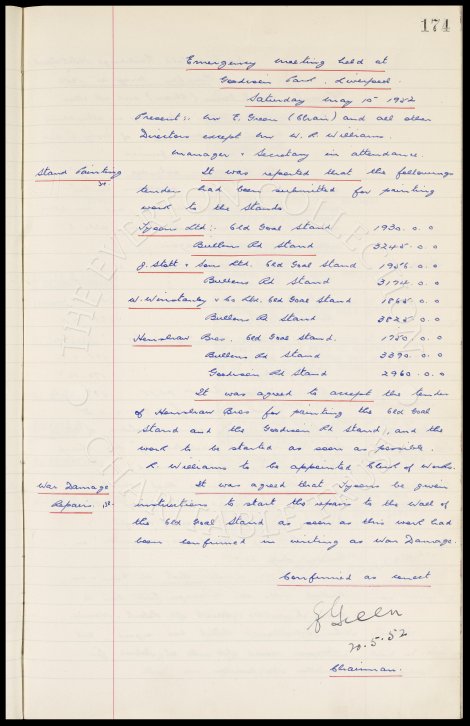 174
Emergency meeting held at
Goodison Park, Liverpool.
Saturday May 10 1952
Present:- Mr E, Green (Chair) and all other
Directors except Mr W. R. Williams.
Manager & Secretary in attendance.
Stand Painting
It was reported that the followings
tenders had been submitted for painting
work to the Stands.
Tysons Ltd:- Gld Goal Stand 1930.0.0
Bullens Rd Stand 3245.0.0
J. Stott & Son Ltd. Gld Goal Stand 1956.0.0
Bullens Rd Stand 3194.0.0
W. Winstanley & Co Ltd. Gld Goal Stand 1865.0.0
Bullens Rd Stand 3825.0.0
Henshaw Bros. Gld Goal Stand. 1750.0.0
Bullens Rd Stand 3390.0.0
Goodison Rd Stand 2960.0.0
It was agreed to accept the tender
of Henshaw Bros for painting the Gld Goal
Stand and the Goodison Rd Stand, and the
work to be started as soon as possible.
R Williams to be appointed Clerk of Works.
War Damage
Repairs.
It was agreed that Tysons be given
instructions to start the repairs to the Wall of
the Gld Goal Stand as soon as this work had
been confirmed in writing as War Damage.
Confirmed as correct
E Green
20.5.52
Chairman.
THE EVERTON COLLECTION
CHARITABLE TRUST